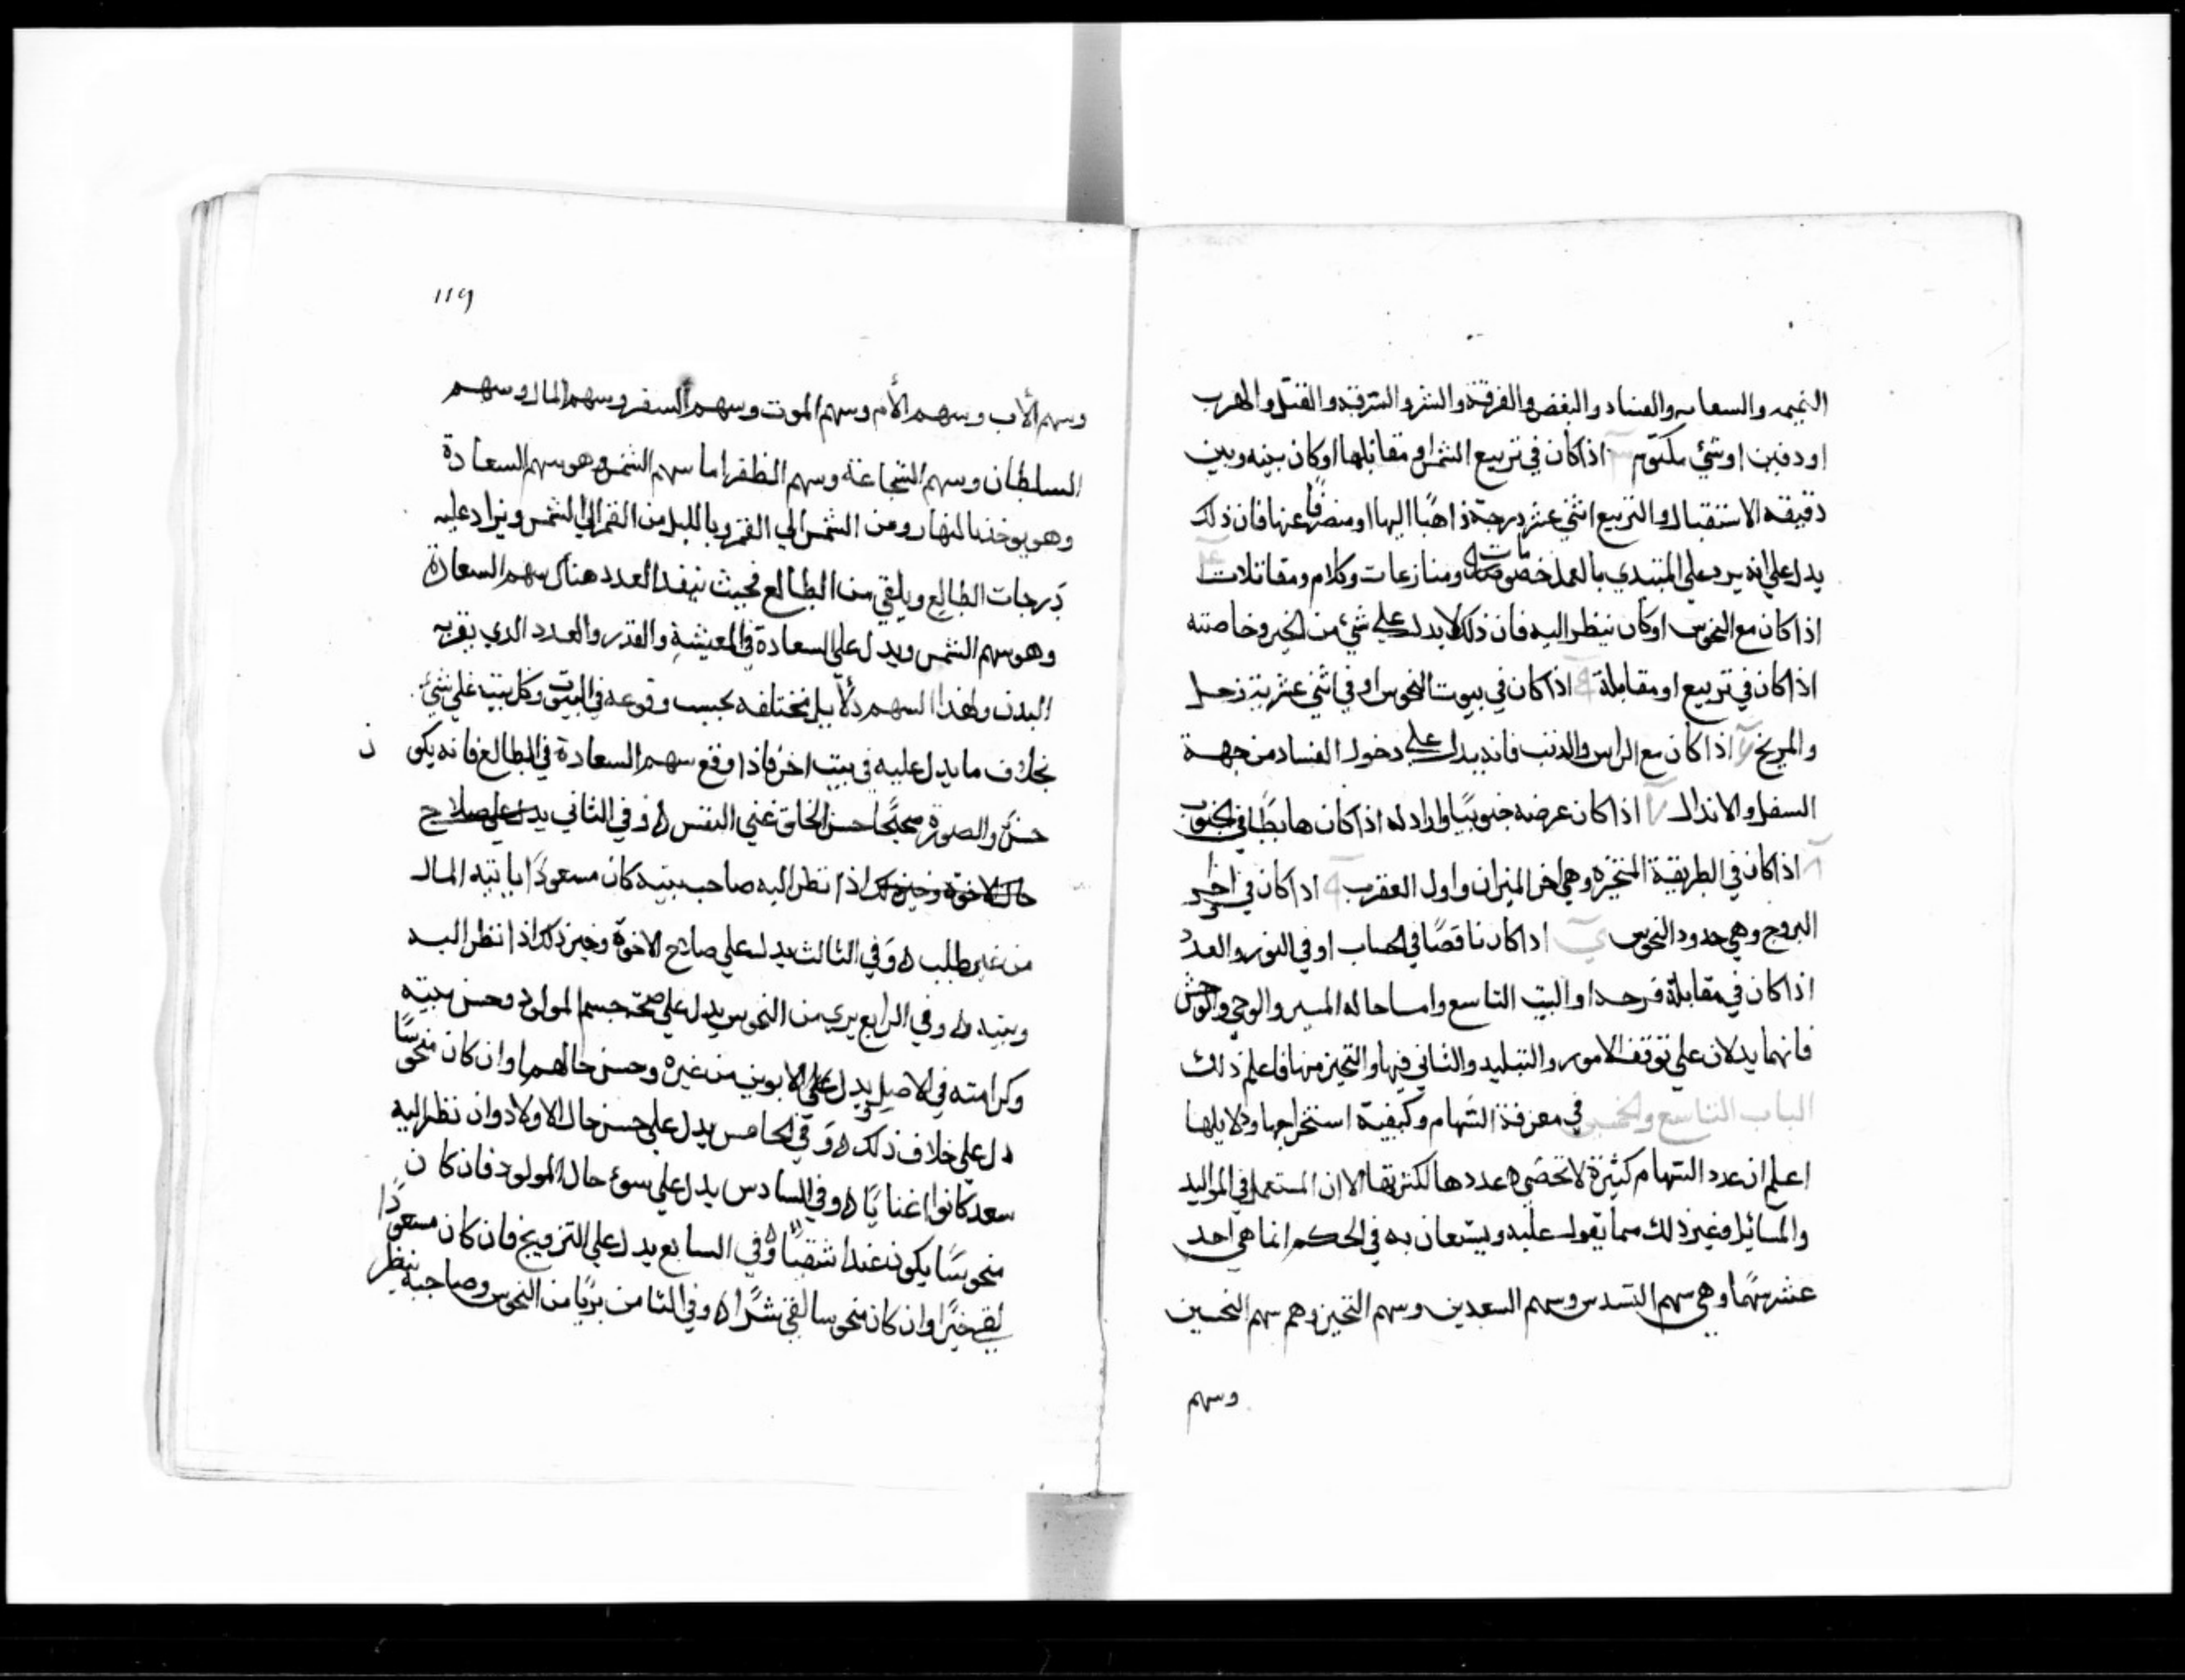 النميمه والسعايه والفساد والبغض والفرقة والشر والسرقه والقتل والهرب
او دفين او شئ مكتوم اذا كان في تربيع الشمس او مقابلها او كان بينه وبين
دقيقه الاستقبال والتربيع اثني عشر درجة ذاهبًا اليها او منصرفًا عنها فان ذلك
يدل علي انه يرد علي المبتدي بالعمل خصومات ومنازعات وكلام ومقاتلات
اذا كان مع النحوس او كان ينظر اليه فان ذلك لا يدل علي شئ من الخير وخاصته
اذا كان في تربيع او مقابلة اذا كان في بيوت النحوس او في اثني عشرية زحل
والمريخ اذا كان مع الراس والذنب فانه يدل علي دخول الفساد من جهة
السفل والاندال اذا كان عرضه جنوبيًا اذا كان هابطًا في الجنوب
اذا كان في الطريقة المتحيرة وهي اخر الميزان واول العقرب اذا كان في اخر
البروج وهي حدود النحوس اذا كان ناقصًا في الحساب او في النور والعدد
اذا كان في مقابلة فرحه او البيت التاسع واما حاله
فانهما يدلان علي توقف الامور والتبليد والثاني فيها والتحيز منها فاعلم ذلك
الباب التاسع والخمسين في معرفة السهام وكيفية استخراجها ودلايلها
اعلم ان عدد السهام كثيرة لا تحصي عددها لكثرتها الا ان المستعمل في المواليد
والمسائل وغير ذلك مما يقول عليه ويستعان به في الحكم انما هي احد
عشر سهمًا وهي سهم التسدس وسهم السعدين وسهم التحيز وهم سهم النحسين
وسهم
119
وسهم الأب وسهم الأم وسهم الموت وسهم السفر وسهم المال وسهم
السلطان وسهم الشجاعة وسهم الظفر اما سهم الشمس وهو سهم السعادة
وهو يوخذ بالنهار ومن الشمس الي القمر وبالليل من القمر الي الشمس ويزاد عليه
درجات الطالع ويلقي من الطالع فحيث ينفد العدد هناك سهم السعادة
وهو سهم الشمس ويدل علي السعادة في المعيشة والقدر والعدد الدي يقربه
البدن ولهذا السهم دلايل مختلفه بحسب وقوعه في البيوت وكل بيت علي شئ
بخلاف ما يدل عليه في بيت اخر فاذا وقع سهم السعادة في الطالع فانه يكو ن
حسن والصورة محبًحا حسن الخلق غني النفس ه وفي الثاني يدل علي صلاح
حال الاخوة وخير ذلك اذا نظر اليه صاحب بيته كان مسعودًا ياتيه المال
من غير طلب ه وفي الثالث يدل علي صلاح الاخوة وخير ذلك اذا نظر اليه
وبيته ه وفي الرابع بري من النحوس يدل علي صحة جسم المولود وحسن بيته
وكرامته في الاصل يدل علي الابوين من غيره وحسن حالهم وان كان منحوسًا
دل علي خلاف ذلك ه وفي الخامس يدل علي حسن حال الاولاد وان نظر اليه
سعد كانوا اغنايًا ه وفي السادس يدل علي سوئ حال المولود فان كان
منحوسًا يكون عبدا شقيًا ه وفي السابع يدل علي التزويج فان كان مسعودًا
لقي خيرًا وان كان منحوسا لقي شرًا ه وفي الثامن بريًا من النحوس وصاحبه ينظر